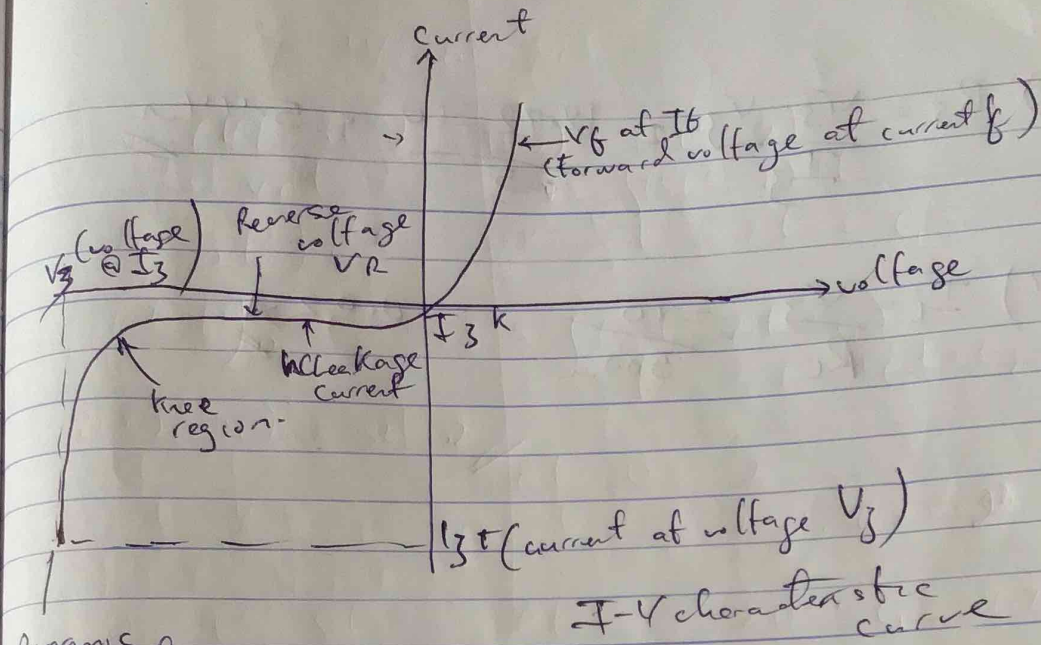 Current
← Vf at If
(forward voltage at current f)
Vz (voltage
@ Iz)
Reverse
voltage
VR
voltage
Iz k
Leakage
current
Knee
region.
Izt (current at voltage Vz)
I-V characteristic
curve